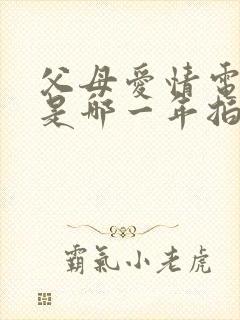 父母愛情電
是哪一年拍
霸氣小老虎